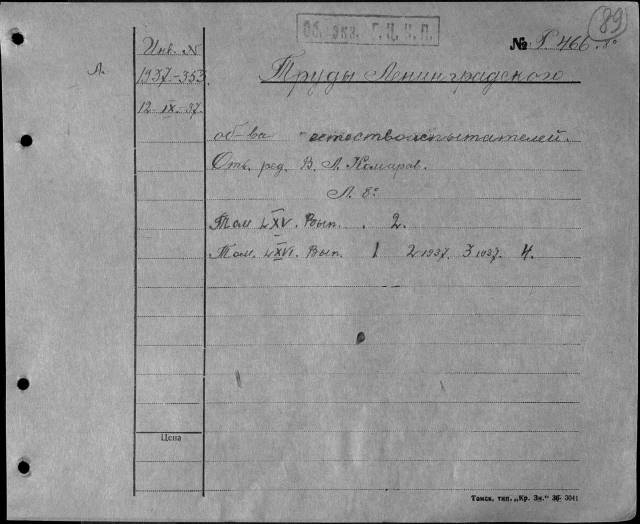 Об. экз. Г. Ц. К. П.
89
№ Р 466
Инв. N
Л.
1937-353
Труды Ленинградского
12-IX-37.
об-ва естествоиспытателей.
Отв. ред. В. Л. Комаров.
Л. 8°
Том LXV. Вып. 2.
Том. LXVI. Вып. 1 2 1937. 3 1937. 4.
Цена
Томск, тип. „Кр. Зн." 36- 3041